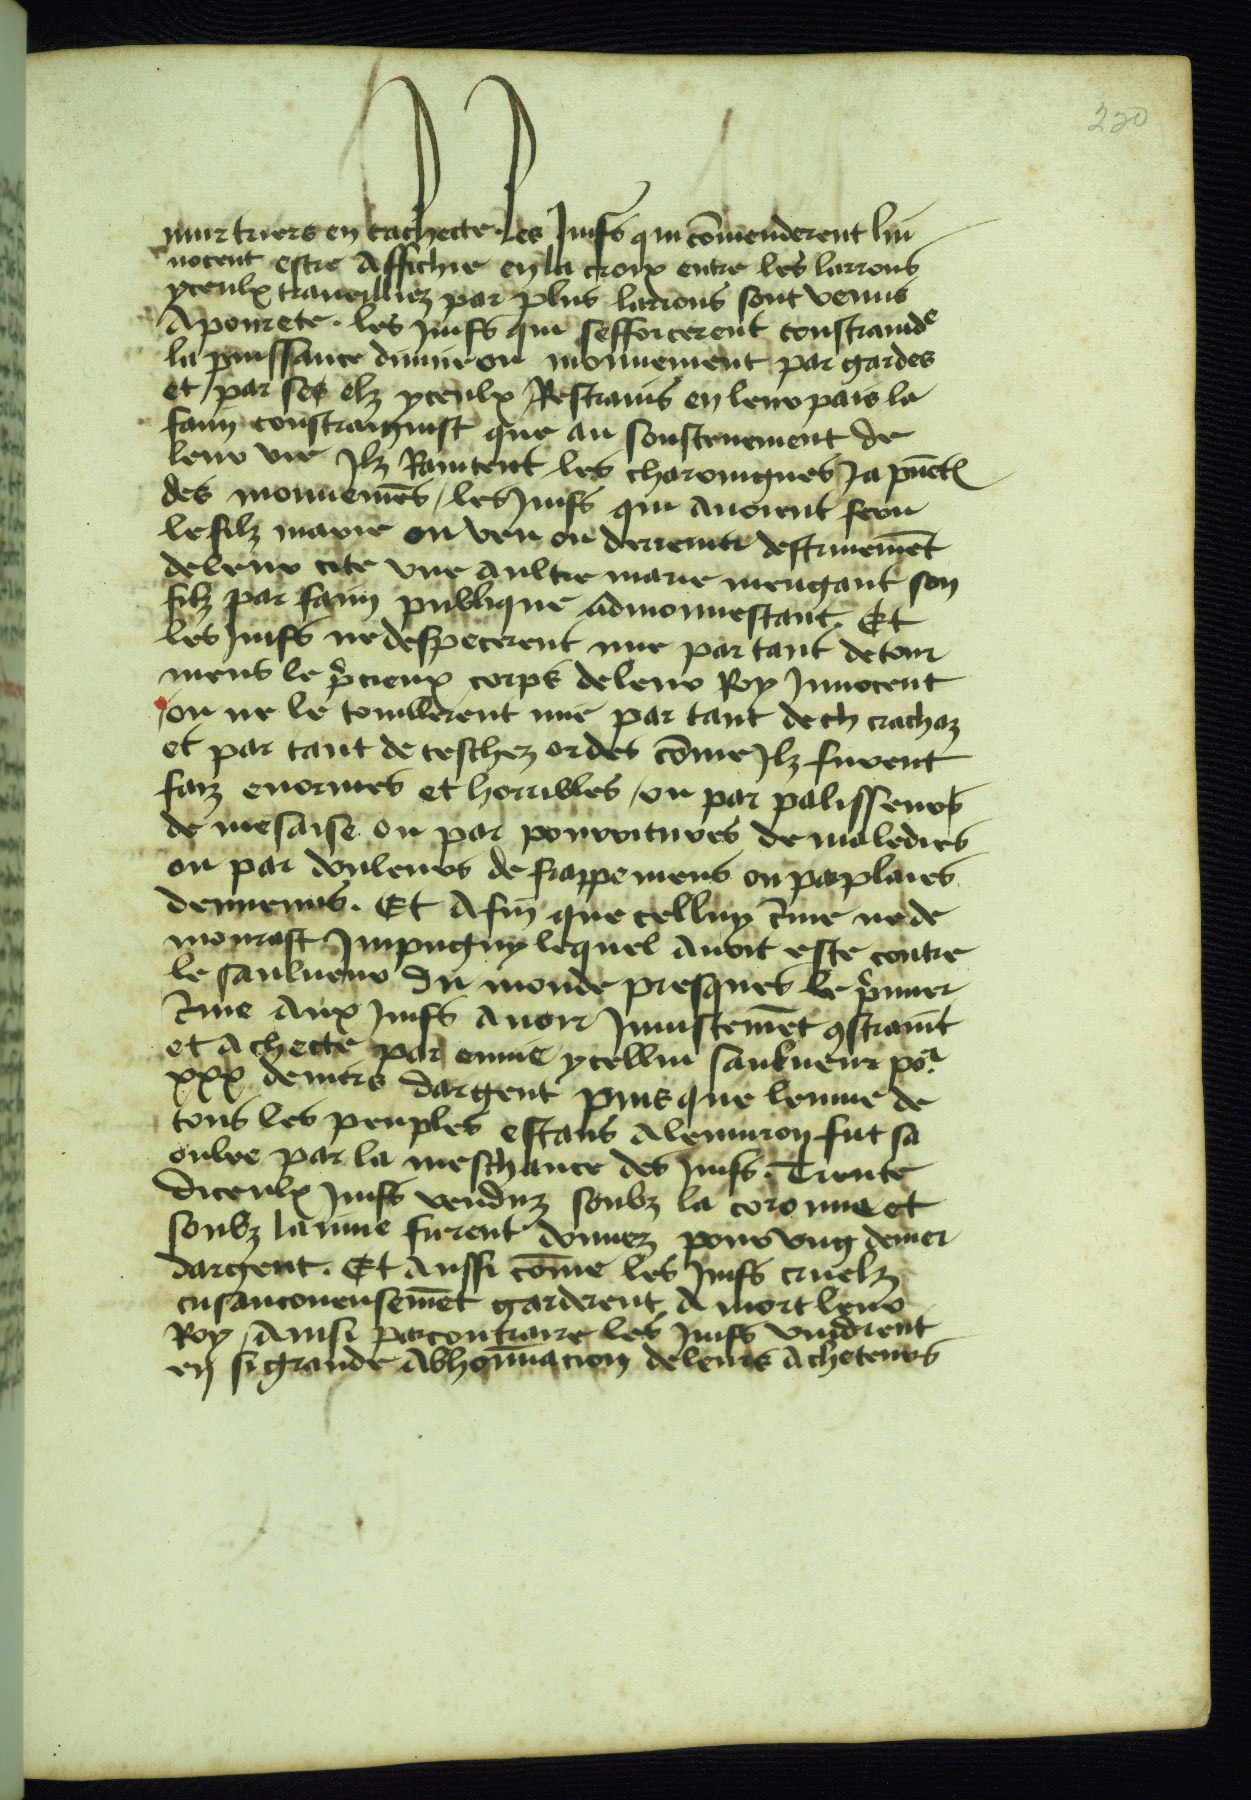 220
murtriers en cachecte. Les Juifs qui cōmenderent lin
nocent estre Affichie en la croix entre les larrons
yceulx traveilliez par plus larrons sont venus
A pourete. les Juifs qui sefforcerent constraindᵉ
la puissance diuine ou monuement par gardes
et par seelz yceulx Restrains en leur pais la
faim constraignist que au soustenement de
leur vie Jlz Raintent les charoingnes Ja
des monuemēs / les Juifs qui auoient feru
le filz marie ou veu ou derrenier destruiemēt
de leur cite vne aultre marie mengant son
filz par faim publique Admonnestant. Et
les Juifs ne despecerent mie par tant de tour
mens le p̄cieux corps de leur Roy Innocent
ou ne le toullerent mie par tant de ch crachaz
et par tant de teschez ordes cōme Jlz furent
faiz enormes et horribles / ou par palisseurs
de mesaise ou par pourritures de maledies
ou par douleurs de frappemens ou par plaies
de venins. Et Afin que celluy c̄me ne de
mourast Impugny lequel Auoit este contre
le saulueur du monde presques le p̄mier
c̄me Aux Juifs Auoir Iniustemēt 9straint
et Achecte par enuie ycellui saulueur poʳ
xxx deniers dargent puis que lenuie de
tous les peuples estans Alenuiron fut sa
oulee par la meschance des Juifs. Trente
diceulx Juifs venduz soubz la coronne et
soubz la nue furent donnez pour vng denier
dargent. Et Aussi cōme les Juifs cruelz
cusanconeusemēt garderent A mort leur
Roy / Ainsi par contraire les Juifs vindrent
en si grande Abhominacion de leurs Acheteurs